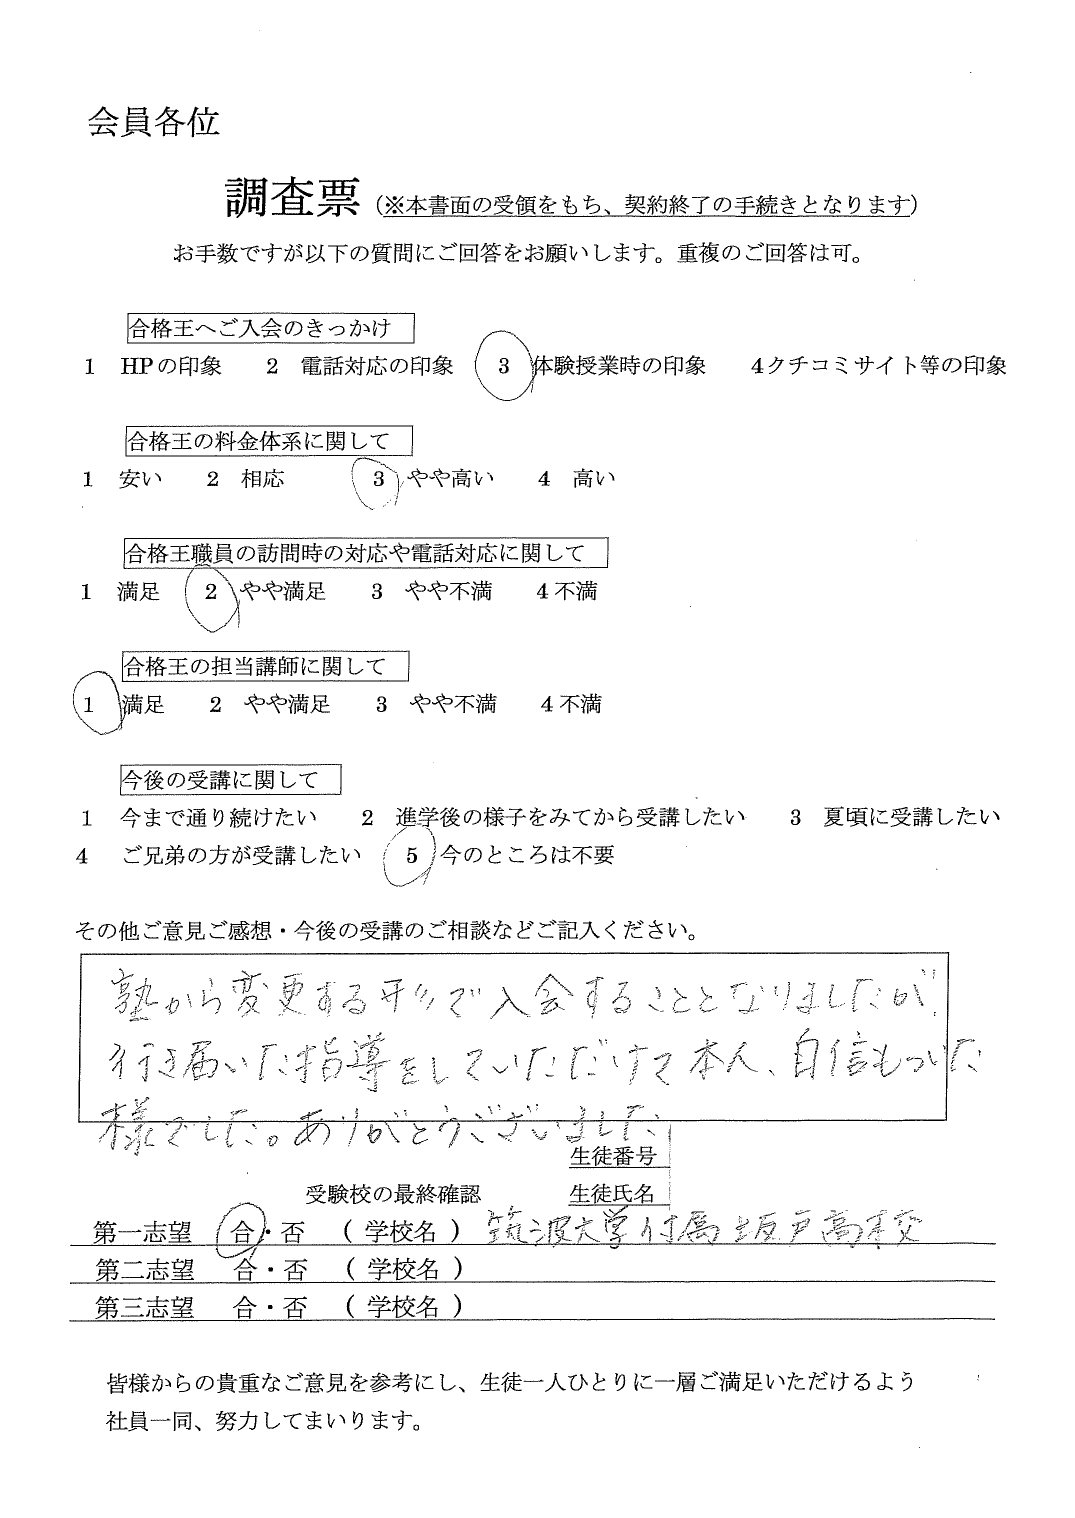 会員各位
調査票（※本書面の受領をもち、契約終了の手続きとなります）
お手数ですが以下の質問にご回答をお願いします。重複のご回答は可。
合格王へご入会のきっかけ
1 HPの印象 2 電話対応の印象 3 体験授業時の印象 4クチコミサイト等の印象
合格王の料金体系に関して
1 安い 2 相応 3 やや高い 4 高い
合格王職員の訪問時の対応や電話対応に関して
1 満足 2 やや満足 3 やや不満 4 不満
合格王の担当講師に関して
1 満足 2 やや満足 3 やや不満 4 不満
今後の受講に関して
1 今まで通り続けたい 2 進学後の様子をみてから受講したい 3 夏頃に受講したい
4 ご兄弟の方が受講したい 5 今のところは不要
その他ご意見ご感想・今後の受講のご相談などご記入ください。
塾から変更する形で入会することとなりましたが、
行き届いた指導をしていただけて本人、自信もついた
様でした。ありがとうございました
生徒番号
受験校の最終確認 生徒氏名
第一志望 合・否 （学校名） 筑波大学付属坂戸高校
第二志望 合・否 （学校名）
第三志望 合・否 （学校名）
皆様からの貴重なご意見を参考にし、生徒一人ひとりに一層ご満足いただけるよう
社員一同、努力してまいります。